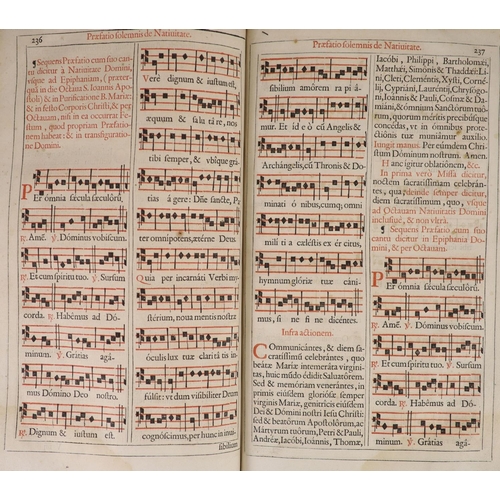 236
Præfatio solemnis de Natiuitate.
¶Sequens Præfatio cum suo can-
tu dicitur à Natiuitate Domini,
vsque ad Epiphaniam, (præter-
quã in die Octauæ S. Ioannis Apo-
stoli) & in Purificatione B. Mariæ:
& in festo Corporis Christi, & per
Octauam, nisi in ea occurrat Fe-
stum, quod propriam Præfatio-
nem habeat: & in transfiguratio-
ne Domini.
PEr omnia sæcula sæculorũ,
℟. Amẽ. ℣. Dóminus vobíscum.
℟. Et cum spíritu tuo. ℣. Sursum
corda. ℟. Habémus ad Dó-
minum. ℣. Grátias agá-
mus Dómino Deo nostro.
℟. Dignum & iustum est.
Verè dignum & iustum est,
æquum & salu tá re, nos
tibi semper, & vbíque grá-
tias á gere: Dñe sancte, Pa-
ter omnípotens, ætérne Deus
Quia per incarnáti Verbi my-
stérium, noua mentis nostræ
óculis lux tuæ claritá tis in-
fúlsit: vt dum visibíliter Deum
cognóscimus, per hunc in inui-
sibílium
Præfatio solemnis de Natiuitate.
237
sibílium amórem ra piá-
mur. Et id e ò cũ Angelis &
Archángelis, cũ Thronis & Do-
minati ó nibus, cumq; omni
milí ti a cæléstis ex ér citus,
hymnum glóriæ tuæ cáni-
mus, si ne fi ne dicéntes.
Infra actionem.
Communicántes, & diem sa-
cratíssimũ celebrántes, quo
beátæ Maríæ intemeráta virgíni-
tas, huic mũdo édidit Saluatórem.
Sed & memóriam venerántes, in
primis eiúsdem gloriósæ semper
vírginis Maríæ, genitrícis eiúsdem
Dei & Dómini nostri Iesu Christi:
sed & beatórum Apostolórum, ac
Mártyrum tuórum, Petri & Pauli,
Andréæ, Iacóbi, Ioánnis, Thomæ,
Iacóbi, Philíppi, Bartholomǽi,
Matthǽi, Simónis & Thaddǽi: Li-
ni, Cleti, Cleméntis, Xysti, Corné-
lij, Cypriáni, Lauréntij, Chrysógo-
ni, Ioánnis & Pauli, Cosmæ & Da-
miáni, & ómnium Sanctórum tuó-
rum, quorum méritis precibúsque
concédas, vt in ómnibus prote-
ctiónis tuæ muniámur auxílio.
Iungit manus. Per eúmdem Chri-
stum Dóminum nostrum. Amen.
Hanc ígitur oblatiónem, &c.
In prima verò Missa dicitur,
noctem sacratíssimam celebrán-
tes, qua: deinde semper dicitur,
diem sacratíssimum, quo, vsque
ad Octauam Natiuitatis Domini
inclusiuè, & non vltra.
¶Sequens Præfatio cum suo
cantu dicitur in Epiphania Do-
mini, & per Octauam.
PEr ómnia sæcula sæculórũ.
℟. Amẽ. ℣. Dóminus vobíscum.
℟. Et cum spíritu tuo. ℣. Sursum
corda. ℟. Habémus ad Dó-
minum. ℣. Grátias agá-